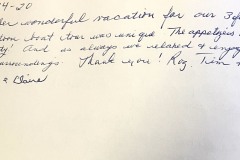 4-20
wonderful vacation for our 3
boat tour was unique. The appetizers
And as always we relaxed & enjoy
surroundings. Thank you! Roy, Tim
& Claire